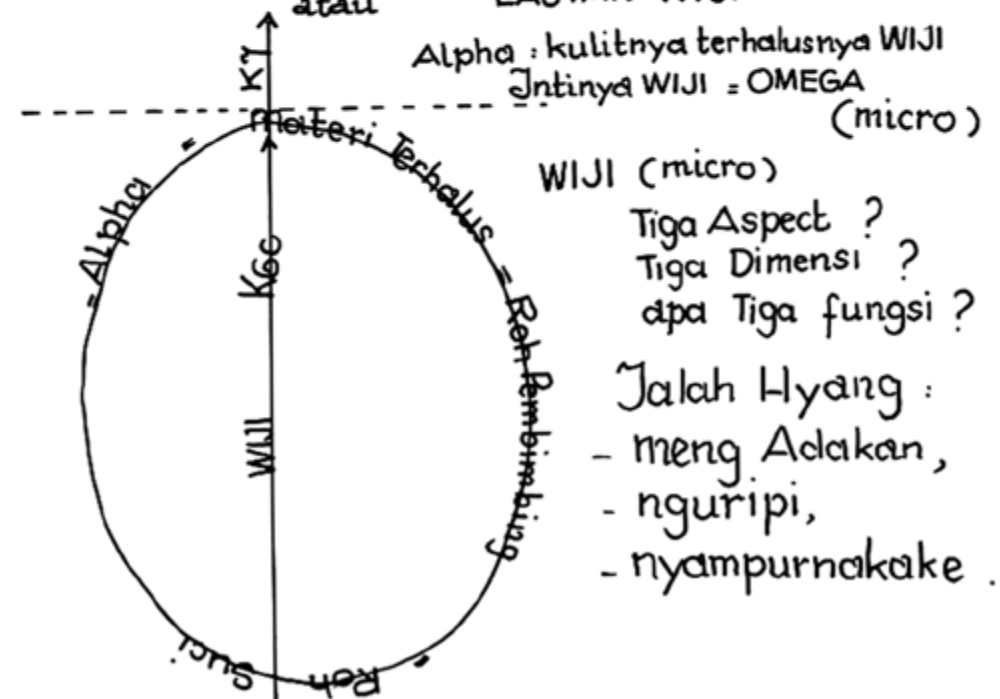 atau
KT
Alpha : kulitnya terhalusnya WIJI
Intinya WIJI = OMEGA
(micro)
= Alpha = Materi Terhalus = Roh Pembimbing = Roh Suci.
KGC
WIJI
WIJI (micro)
Tiga Aspect ?
Tiga Dimensi ?
apa Tiga fungsi ?
Ialah Hyang :
- meng Adakan,
- nguripi,
- nyampurnakake .